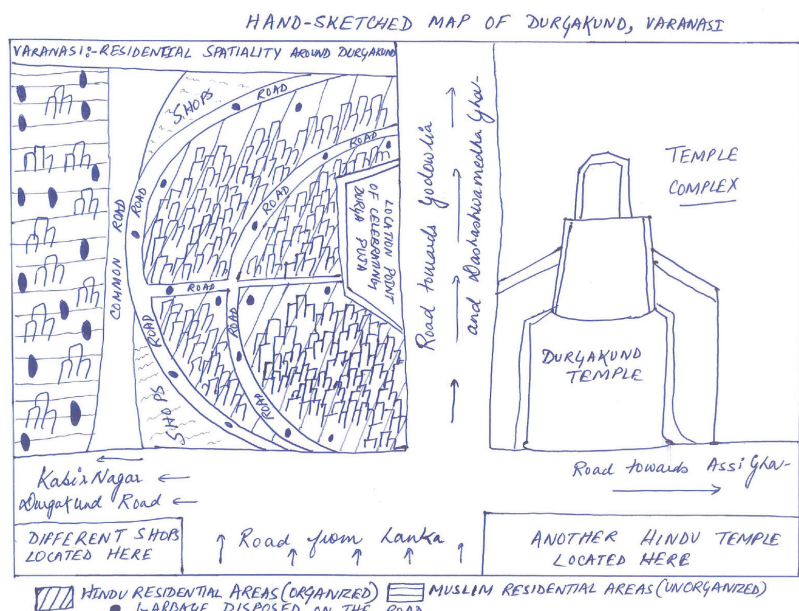 HAND-SKETCHED MAP OF DURGAKUND, VARANASI
VARANASI:-RESIDENTIAL SPATIALITY AROUND DURGAKUND
SHOPS
ROAD
ROAD
ROAD
ROAD
COMMON ROAD
LOCATION POINT
OF CELEBRATING
DURGA PUJA
ROAD
ROAD
ROAD
ROAD
SHOPS
Road towards Godowlia
and Dashashwamedha Ghat
TEMPLE
COMPLEX
DURGAKUND
TEMPLE
Kabir Nagar
Durgakund Road
Road towards Assi Ghat
DIFFERENT SHOPS
LOCATED HERE
Road from Lanka
ANOTHER HINDU TEMPLE
LOCATED HERE
HINDU RESIDENTIAL AREAS (ORGANIZED)
MUSLIM RESIDENTIAL AREAS (UNORGANIZED)
GARBAGE DISPOSED ON THE ROAD